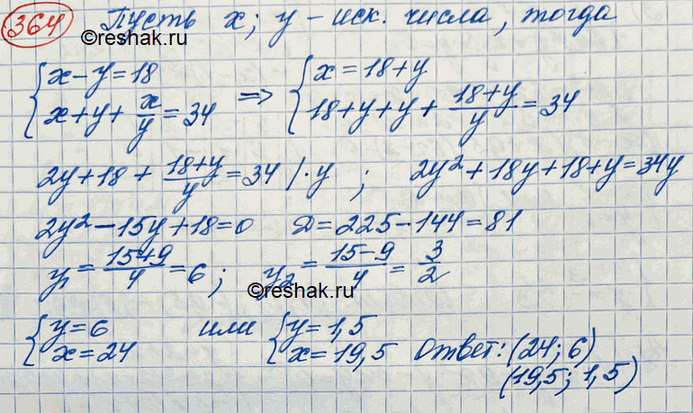 364 Пусть x; y - иск. числа, тогда
©reshak.ru
{x-y=18 x+y+x/y=34 => {x=18+y 18+y+y+(18+y)/y=34
2y+18+(18+y)/y=34 /·y ; 2y²+18y+18+y=34y
2y²-15y+18=0 D=225-144=81
y₁=(15+9)/4=6; y₂=(15-9)/4=3/2
©reshak.ru
{y=6 x=24 или {y=1,5 x=19,5 Ответ: (24; 6)
(19,5; 1,5)
©reshak.ru